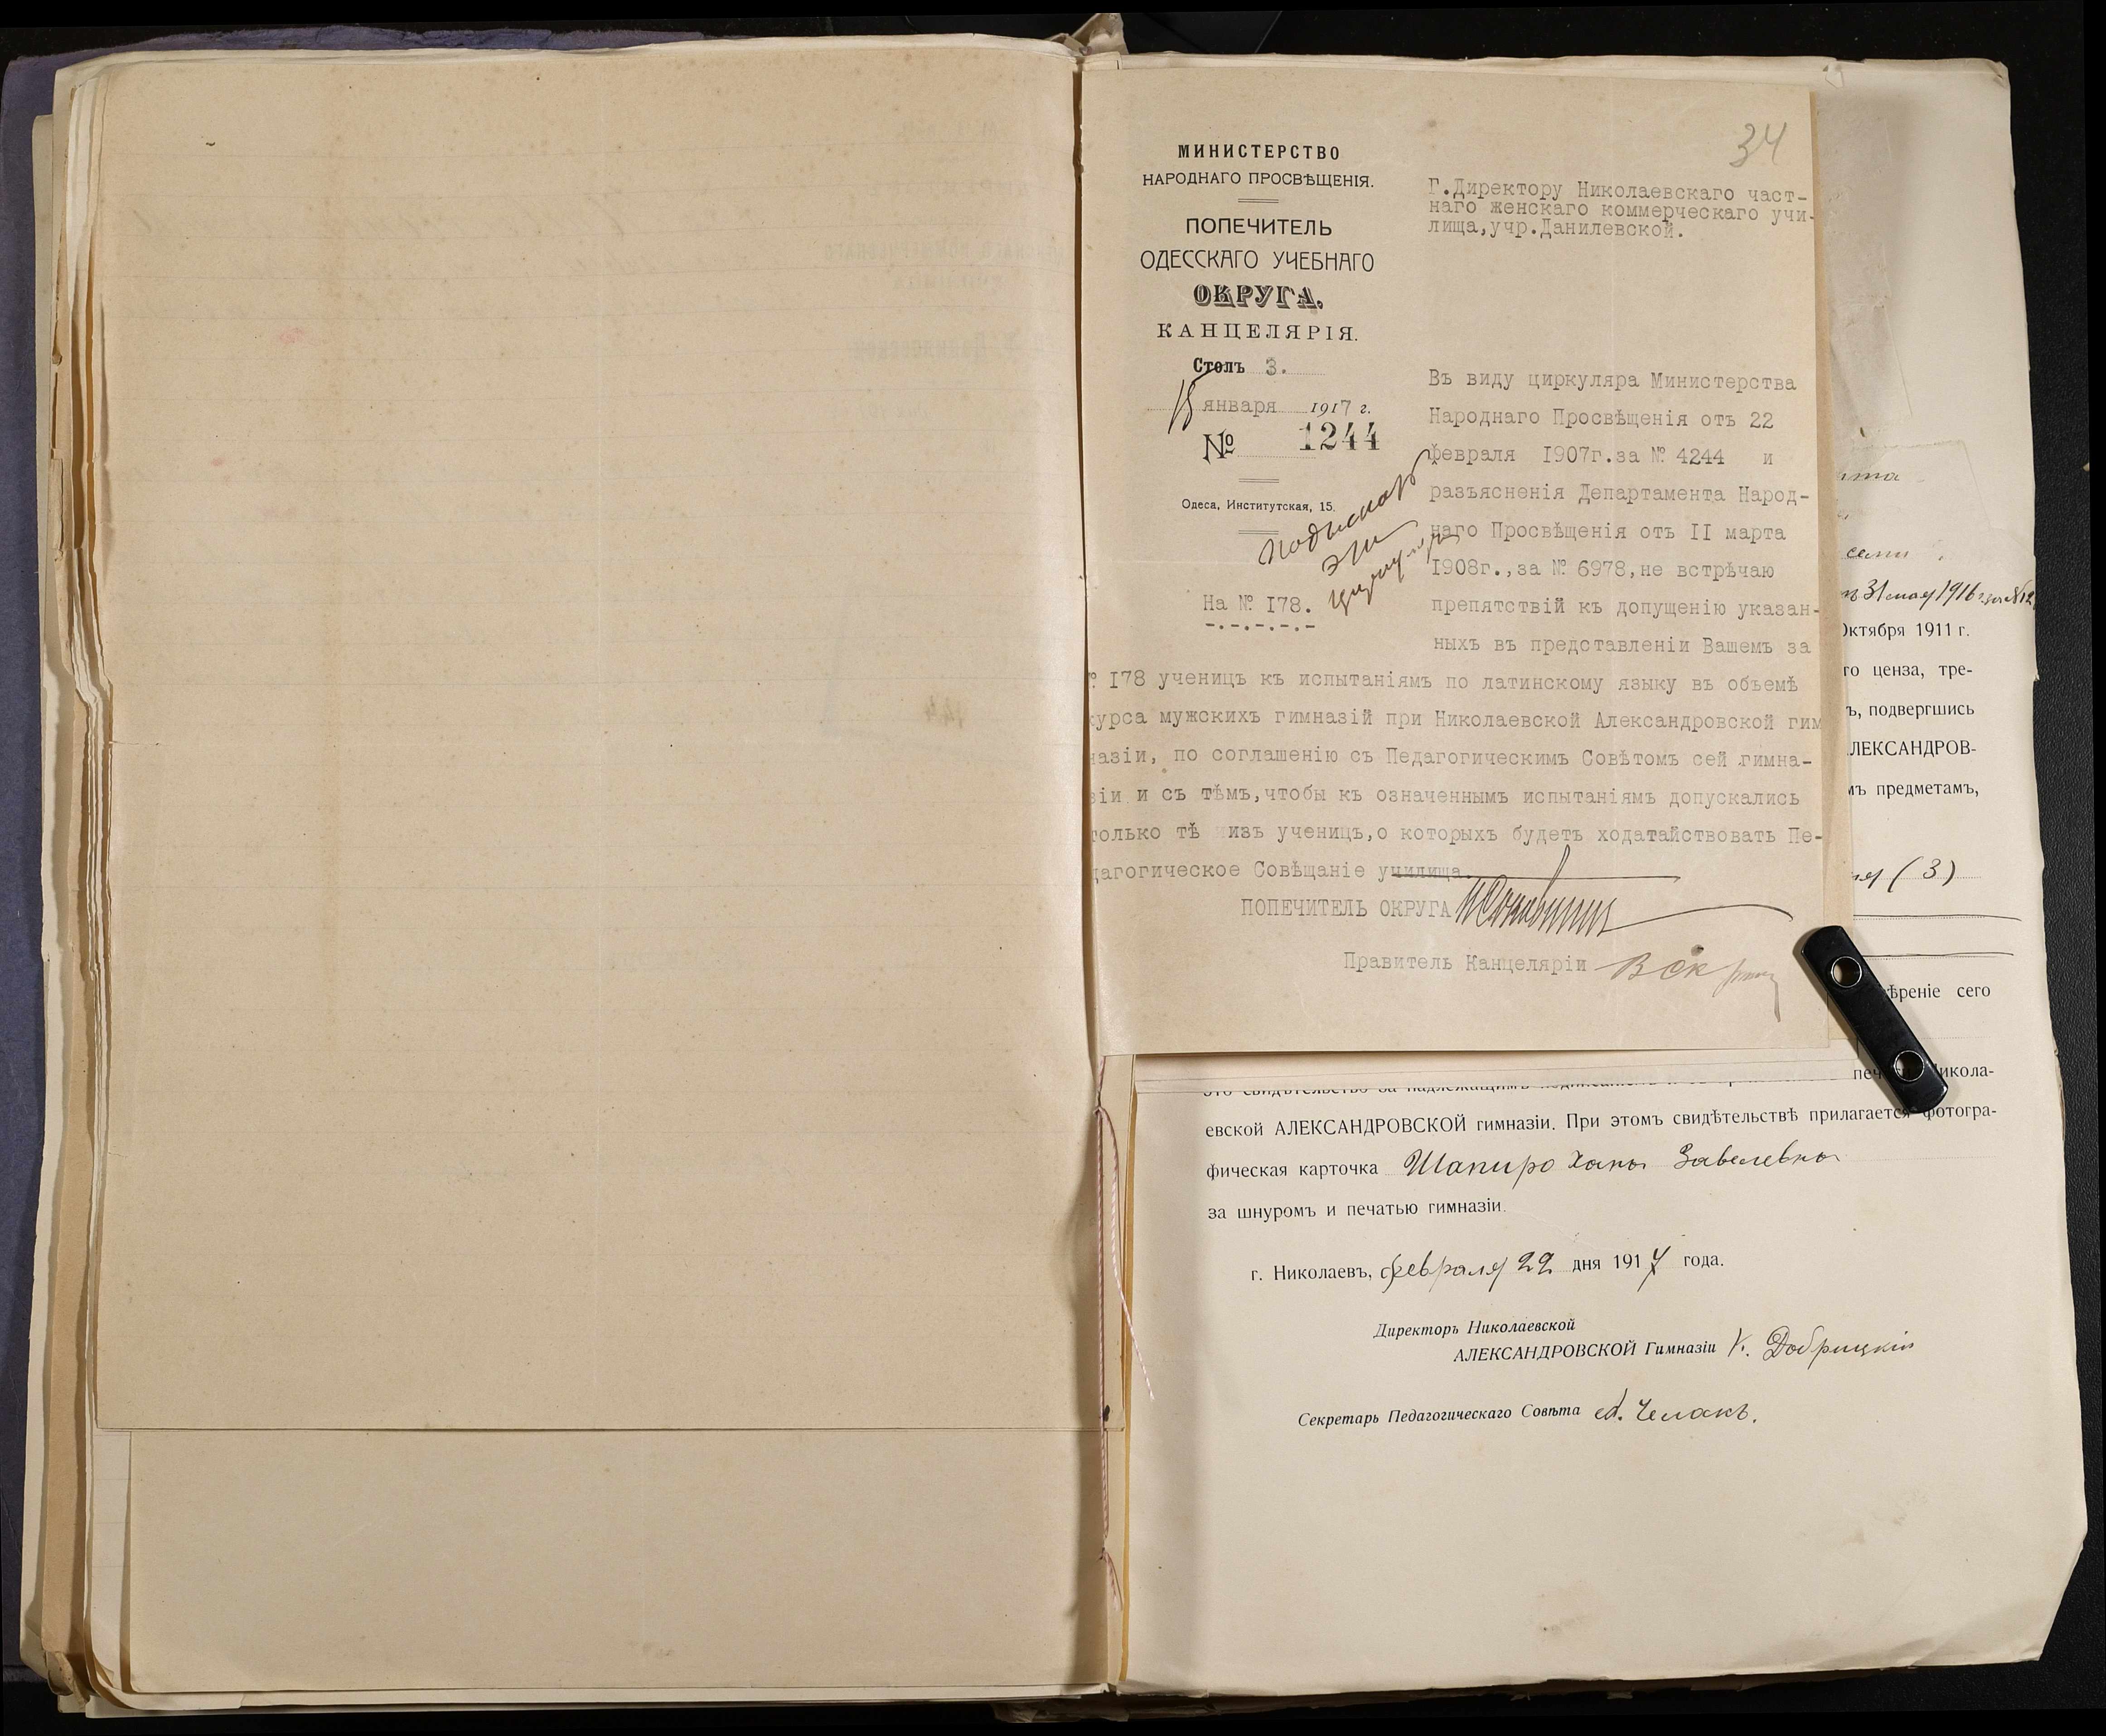 34
МИНИСТЕРСТВО
НАРОДНАГО ПРОСВѢЩЕНІЯ.
ПОПЕЧИТЕЛЬ
ОДЕССКАГО УЧЕБНАГО
ОКРУГА.
КАНЦЕЛЯРІЯ.
Столъ 3.
января 1917 г.
№ 1244
Одеса, Институтская, 15.
На № 178.
Г.Директору Николаевскаго част-
наго женскаго коммерческаго учи-
лища,учр.Данилевской.
Въ виду циркуляра Министерства
Народнаго Просвѣщенія отъ 22
февраля 1907г.за № 4244 и
разъясненія Департамента Народ-
наго Просвѣщенія отъ II марта
1908г.,за № 6978,не встрѣчаю
препятствій къ допущенію указан-
ныхъ въ представленіи Вашемъ за
№ 178 ученицъ къ испытаніямъ по латинскому языку въ объемѣ
курса мужскихъ гимназій при Николаевской Александровской гим
назіи, по соглашенію съ Педагогическимъ Совѣтомъ сей гимна-
зіи и съ тѣмъ,чтобы къ означеннымъ испытаніямъ допускались
только тѣ изъ ученицъ,о которыхъ будетъ ходатайствовать Пе-
дагогическое Совѣщаніе училища.
ПОПЕЧИТЕЛЬ ОКРУГА
Правитель Канцеляріи
31 мая 1916
Октября 1911 г.
го ценза, тре-
ъ, подвергшись
АЛЕКСАНДРОВ-
мъ предметамъ,
(3)
ѣреніе сего
икола-
евской АЛЕКСАНДРОВСКОЙ гимназіи. При этомъ свидѣтельствѣ прилагается фотогра-
фическая карточка Шапиро Ханы Завелевны
за шнуромъ и печатью гимназіи.
г. Николаевъ, февраля 22 дня 1917 года.
Директоръ Николаевской
АЛЕКСАНДРОВСКОЙ Гимназіи К. Добрицкій
Секретарь Педагогическаго Совѣта